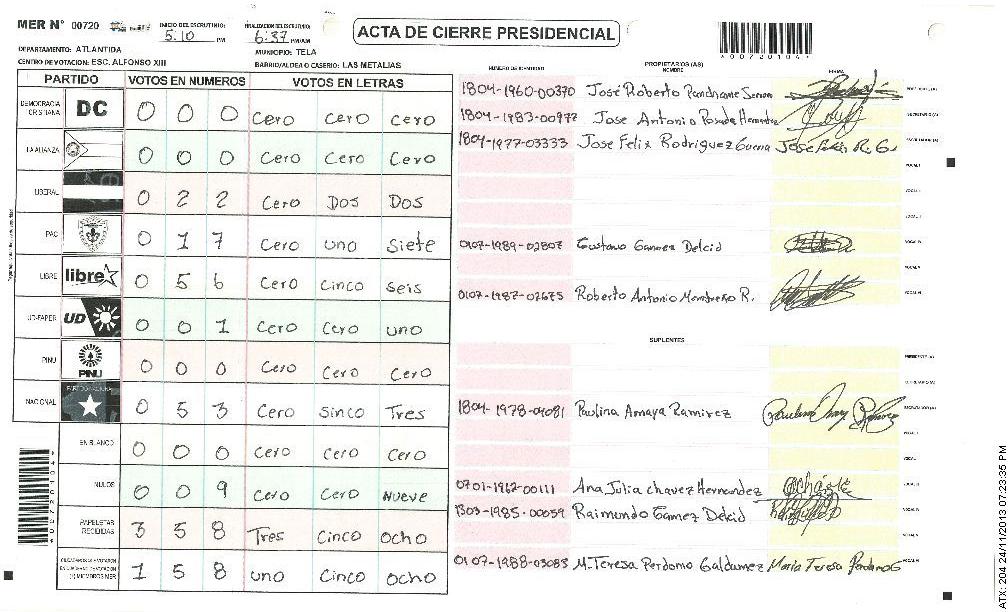 MER N° 00720 INICIO DEL ESCRUTINIO: 5:10 PM FINALIZACION DEL ESCRUTINIO: 6:37 PM/AM
ACTA DE CIERRE PRESIDENCIAL
*00720104*
DEPARTAMENTO: ATLANTIDA MUNICIPIO: TELA
CENTRO DE VOTACION: ESC. ALFONSO XIII BARRIO/ALDEA O CASERIO: LAS METALIAS
PARTIDO VOTOS EN NUMEROS VOTOS EN LETRAS
DEMOCRACIA CRISTIANA DC 0 0 0 Cero Cero Cero
LA ALIANZA 0 0 0 Cero Cero Cero
LIBERAL 0 2 2 Cero Dos Dos
PAC 0 1 7 Cero uno Siete
LIBRE libre 0 5 6 Cero Cinco seis
UD-FAPER UD 0 0 1 Cero Cero uno
PINU PINU 0 0 0 Cero Cero Cero
NACIONAL PARTIDO NACIONAL 0 5 3 Cero Sinco Tres
EN BLANCO 0 0 0 Cero Cero Cero
NULOS 0 0 9 Cero Cero Nueve
PAPELETAS RECIBIDAS 3 5 8 Tres Cinco Ocho
(+) MIEMBROS MER 1 5 8 uno Cinco ocho
*00720104*
PROPIETARIOS (AS)
NUMERO DE IDENTIDAD NOMBRE FIRMA
1804-1960-00370 José Roberto
1804-1983-00977 Jose Antonio Posada Hernandez
1804-1977-03333 Jose Felix Rodriguez Guerra José Felix R. G.
0107-1989-02807 Gustavo Gamez Delcid
0107-1987-02675 Roberto Antonio R.
SUPLENTES
1804-1978-04081 Paulina Amaya Ramirez
0701-1962-00111 Ana Julia Chavez Hernandez
1303-1985-00059 Raimundo Gamez Delcid
0107-1988-03083 M. Teresa Perdomo Galdamez Maria Teresa Perdomo G
ATX: 204 24/11/2013 07:23:35 PM